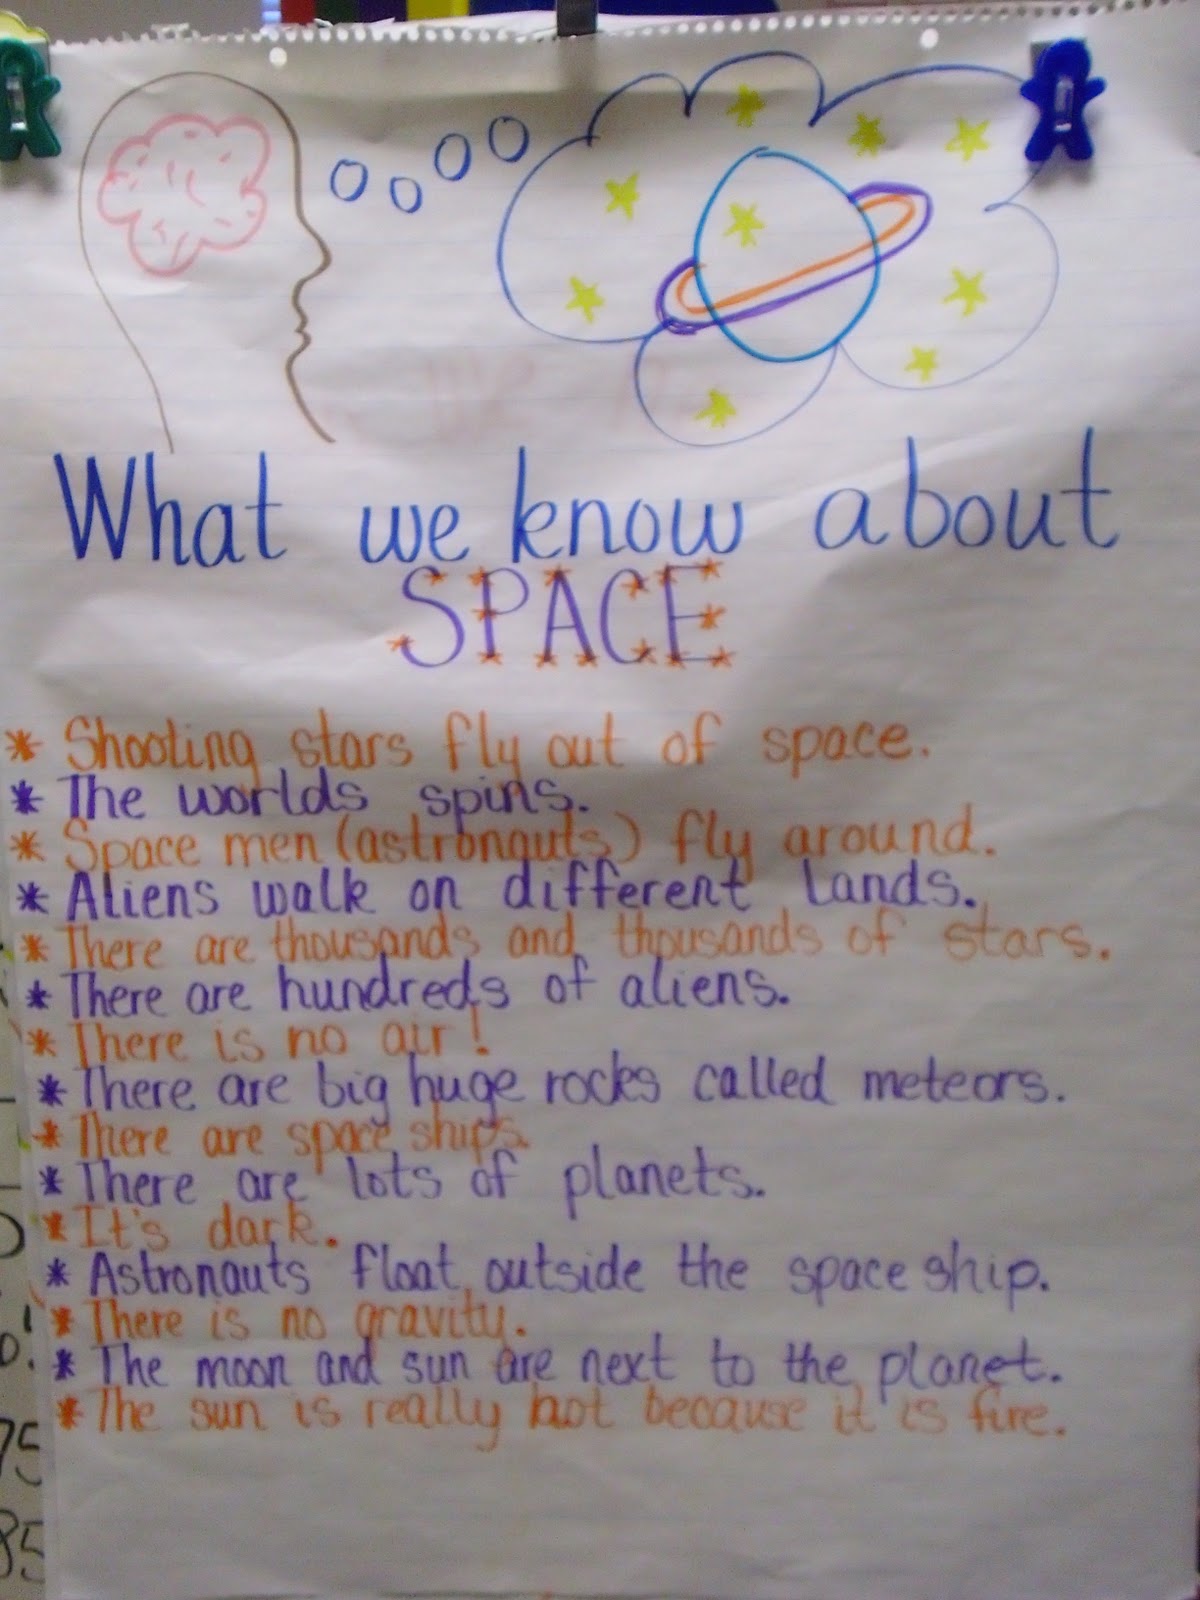 What we know about
SPACE
* Shooting stars fly out of space.
* The worlds spins.
* Space men (astronauts) fly around.
* Aliens walk on different lands.
* There are thousands and thousands of stars.
* There are hundreds of aliens.
* There is no air!
* There are big huge rocks called meteors.
* There are space ships.
* There are lots of planets.
* It's dark.
* Astronauts float outside the space ship.
* There is no gravity.
* The moon and sun are next to the planet.
* The sun is really hot because it is fire.
75
85